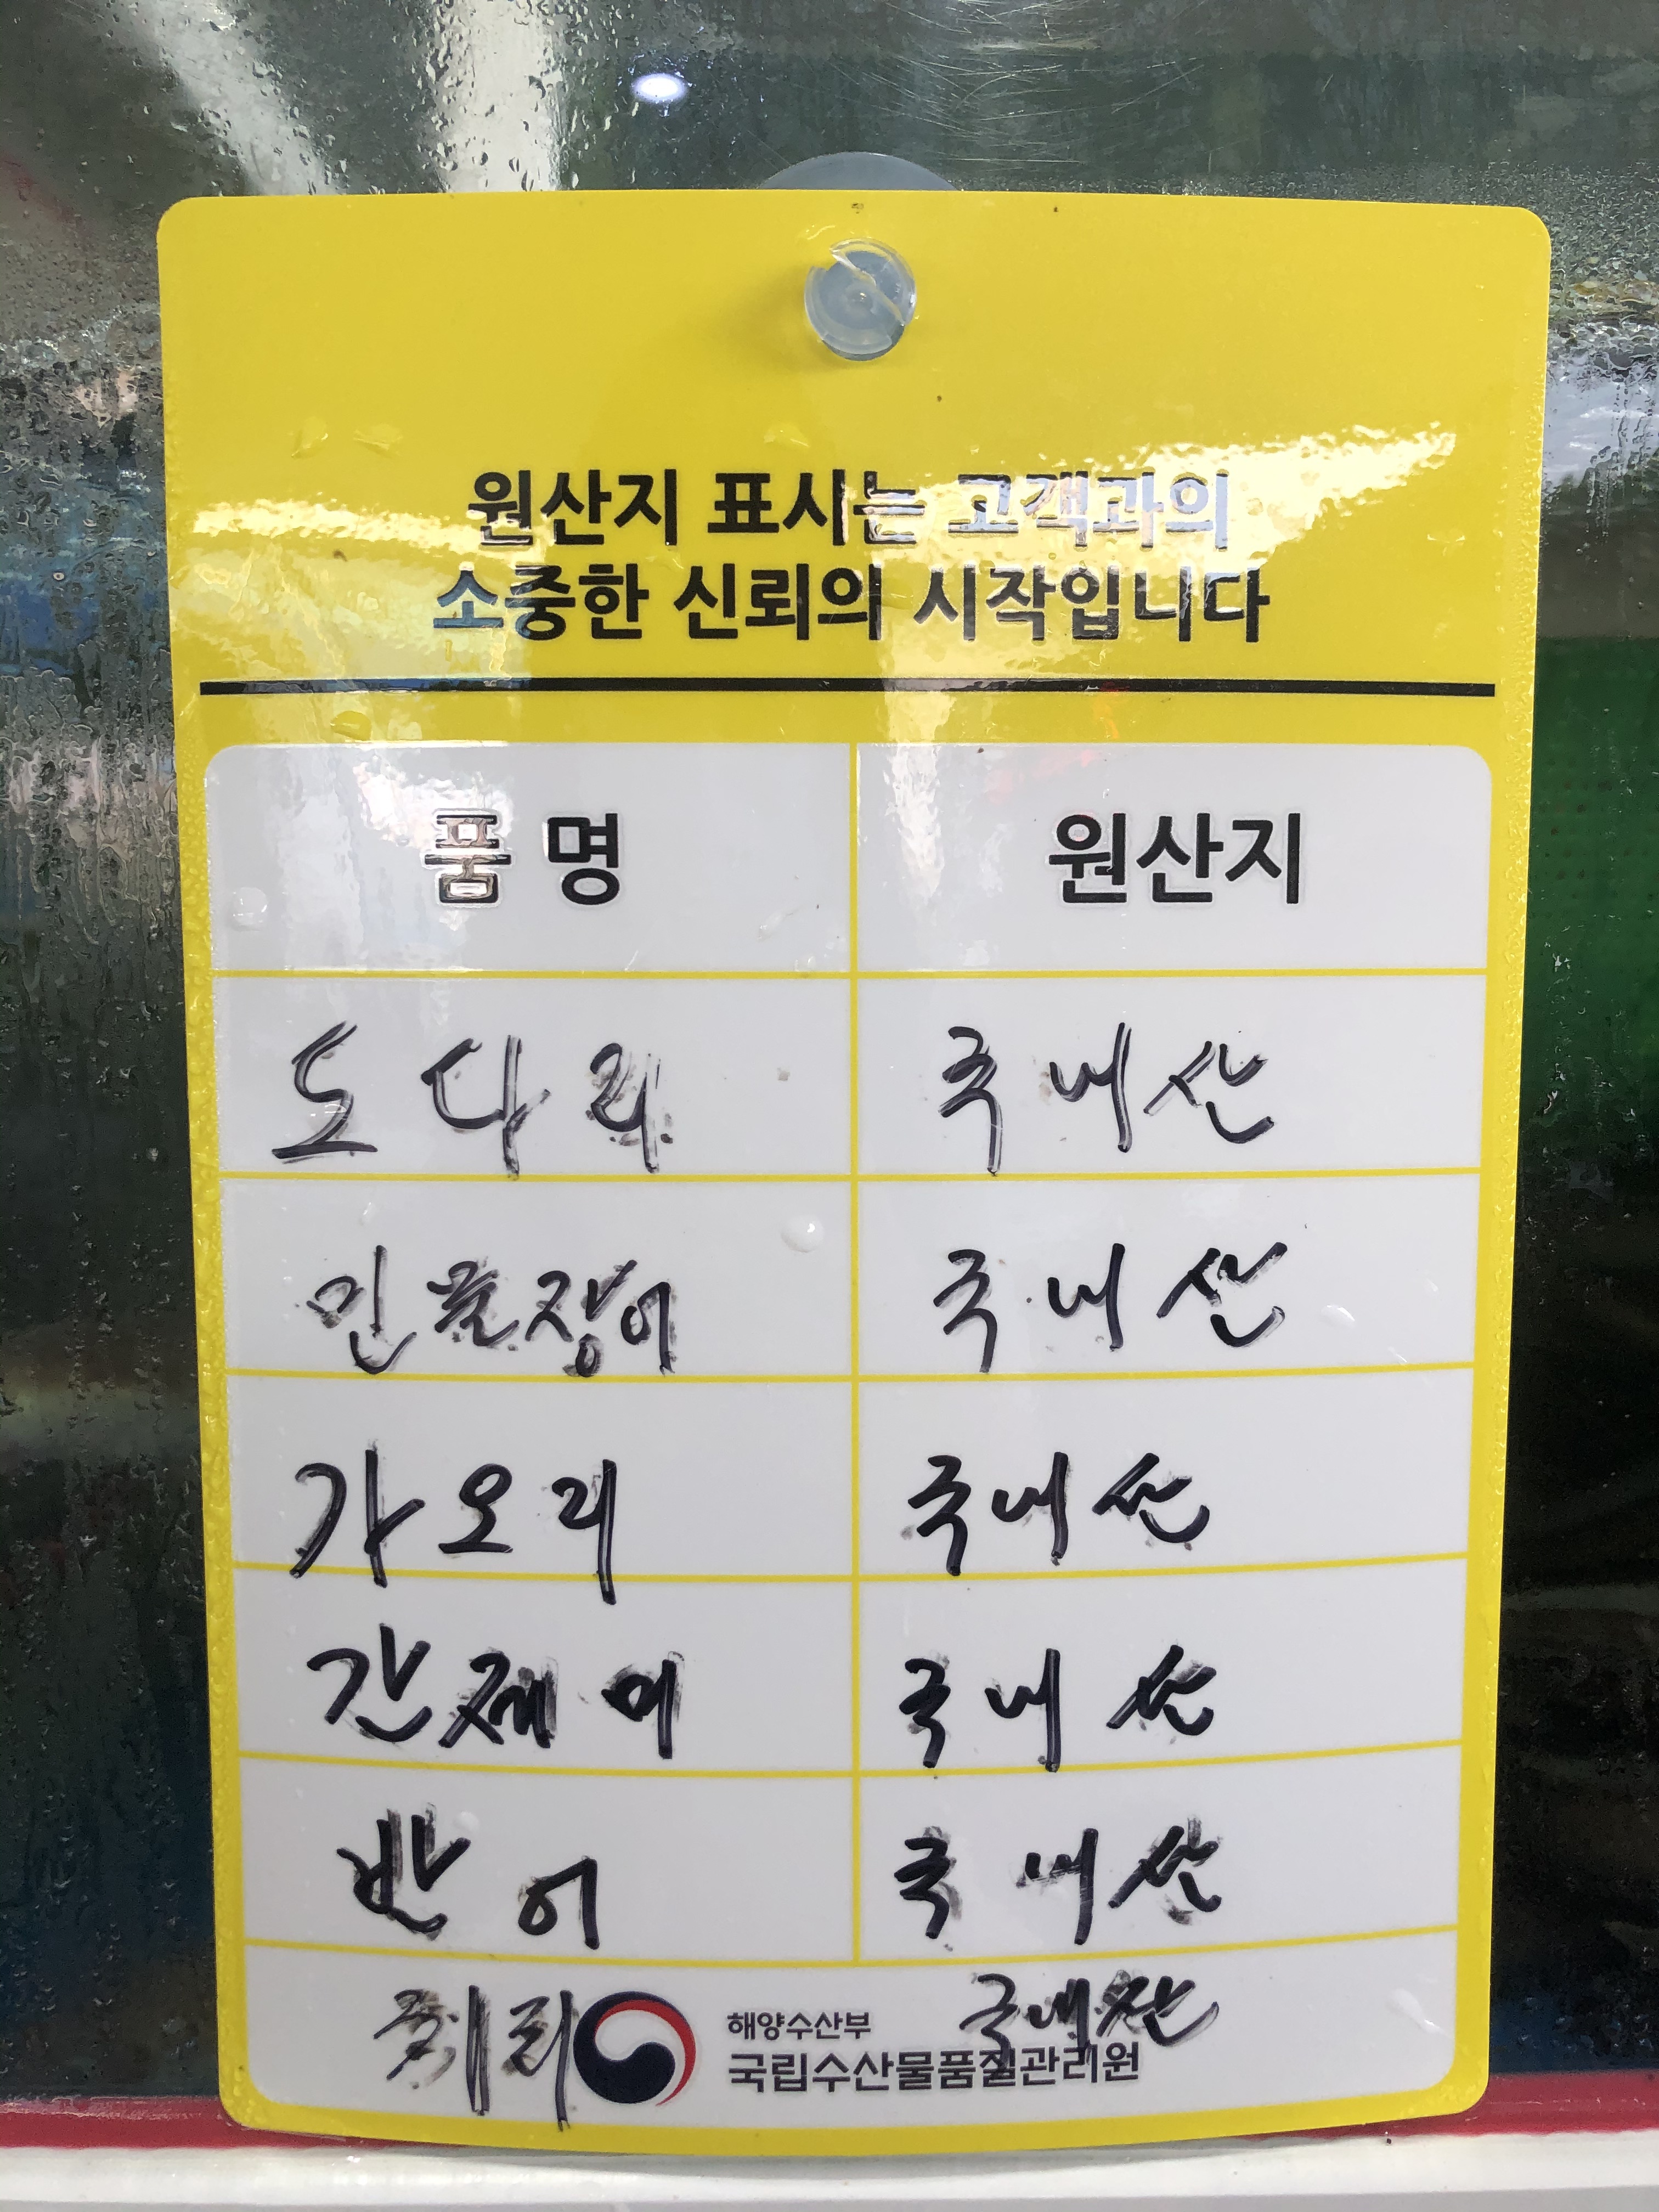 원산지 표시는 고객과의
소중한 신뢰의 시작입니다
품명 원산지
도다리 국내산
민물장어 국내산
가오리 국내산
간제미 국내산
반어 국내산
국내산
해양수산부
국립수산물품질관리원